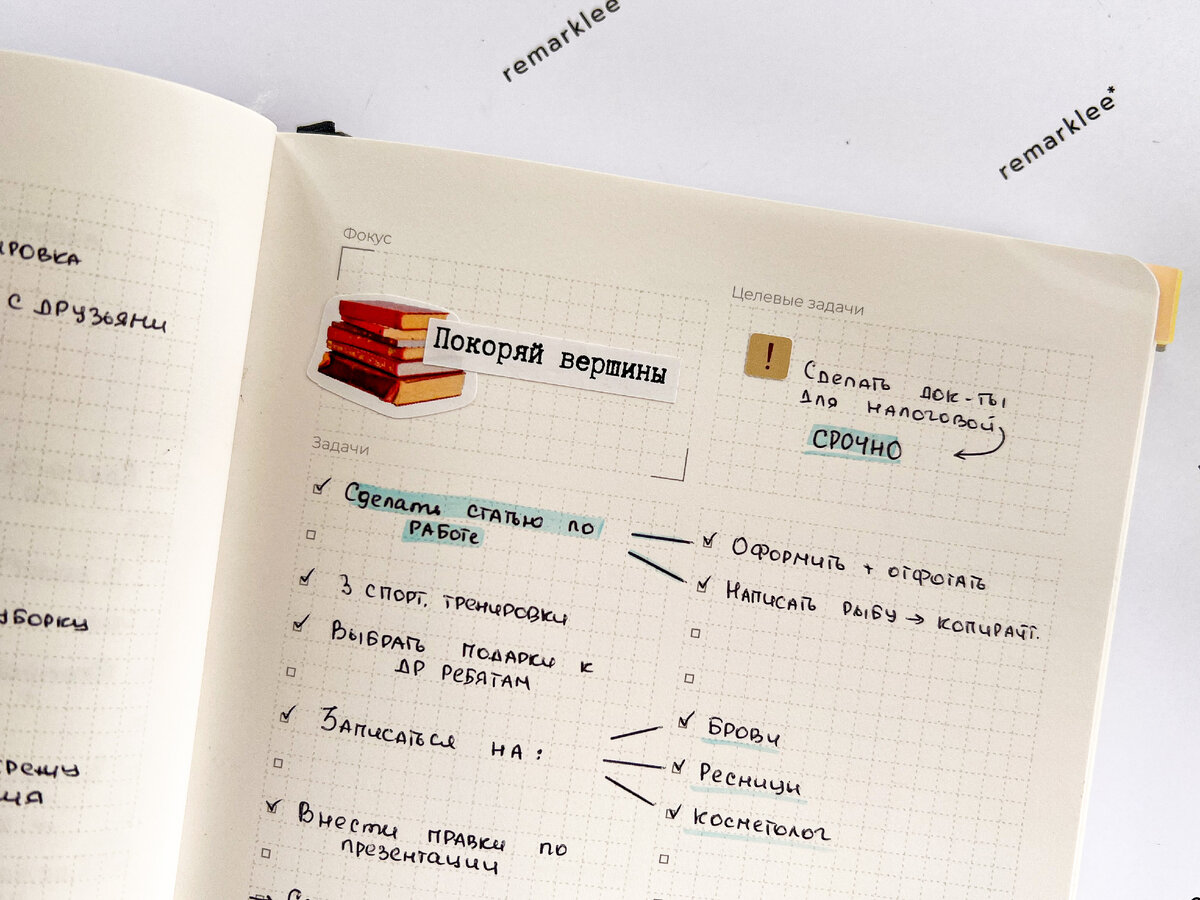 remarklee
remarklee*
с друзьями
уборку
Фокус
Покоряй вершины
Целевые задачи
!
Сделать док-ты
для налоговой
СРОЧНО
Задачи
Сделать статью по
работе
3 спорт. тренировки
Выбрать подарки к
ДР ребятам
Записаться на:
Внести правки по
презентации
Оформить + отфотать
Написать рыбу → копирайт.
Брови
Ресницы
Косметолог